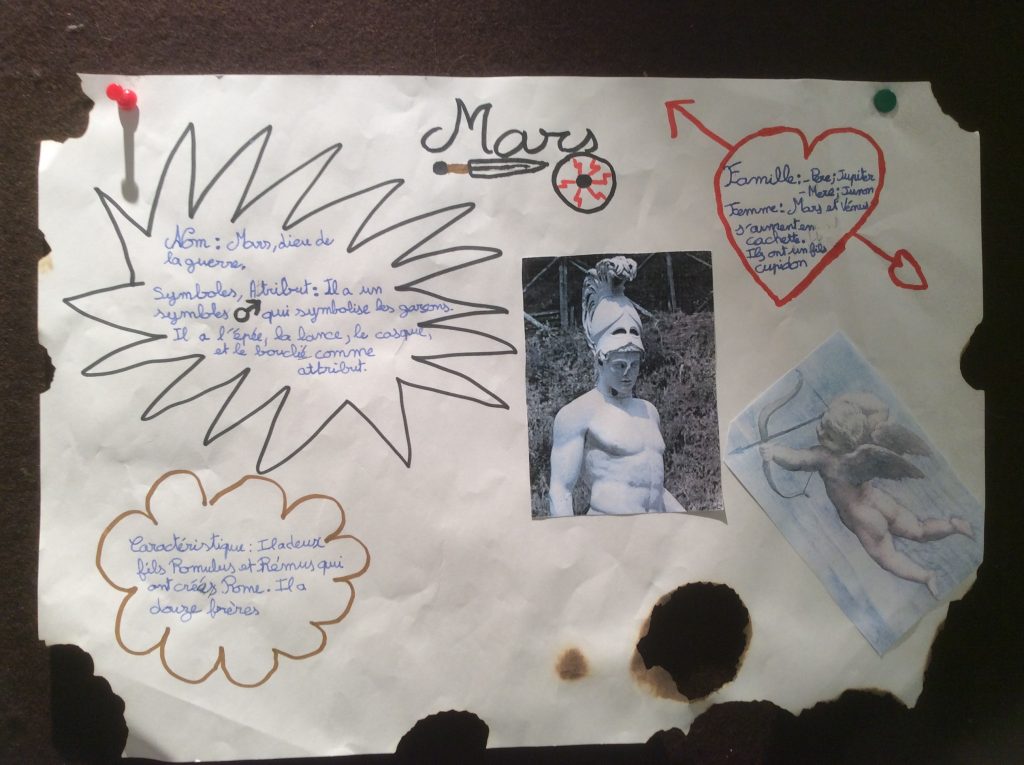 Mars
Nom : Mars, dieu de
la guerre.
Symboles, Atribut : Il a un
symbole ♂ qui symbolise les garçons.
Il a l'épée, la lance, le casque,
et le bouclié comme
attribut.
Famille : - Père ; Jupiter
- Mere ; Junon
Femme : Mars et Vénus
s'aiment en
cachette.
Ils ont un fils
cupidon
Caractéristique : Il a deux
fils Romulus et Rémus qui
ont créés Rome. Il a
douze frères